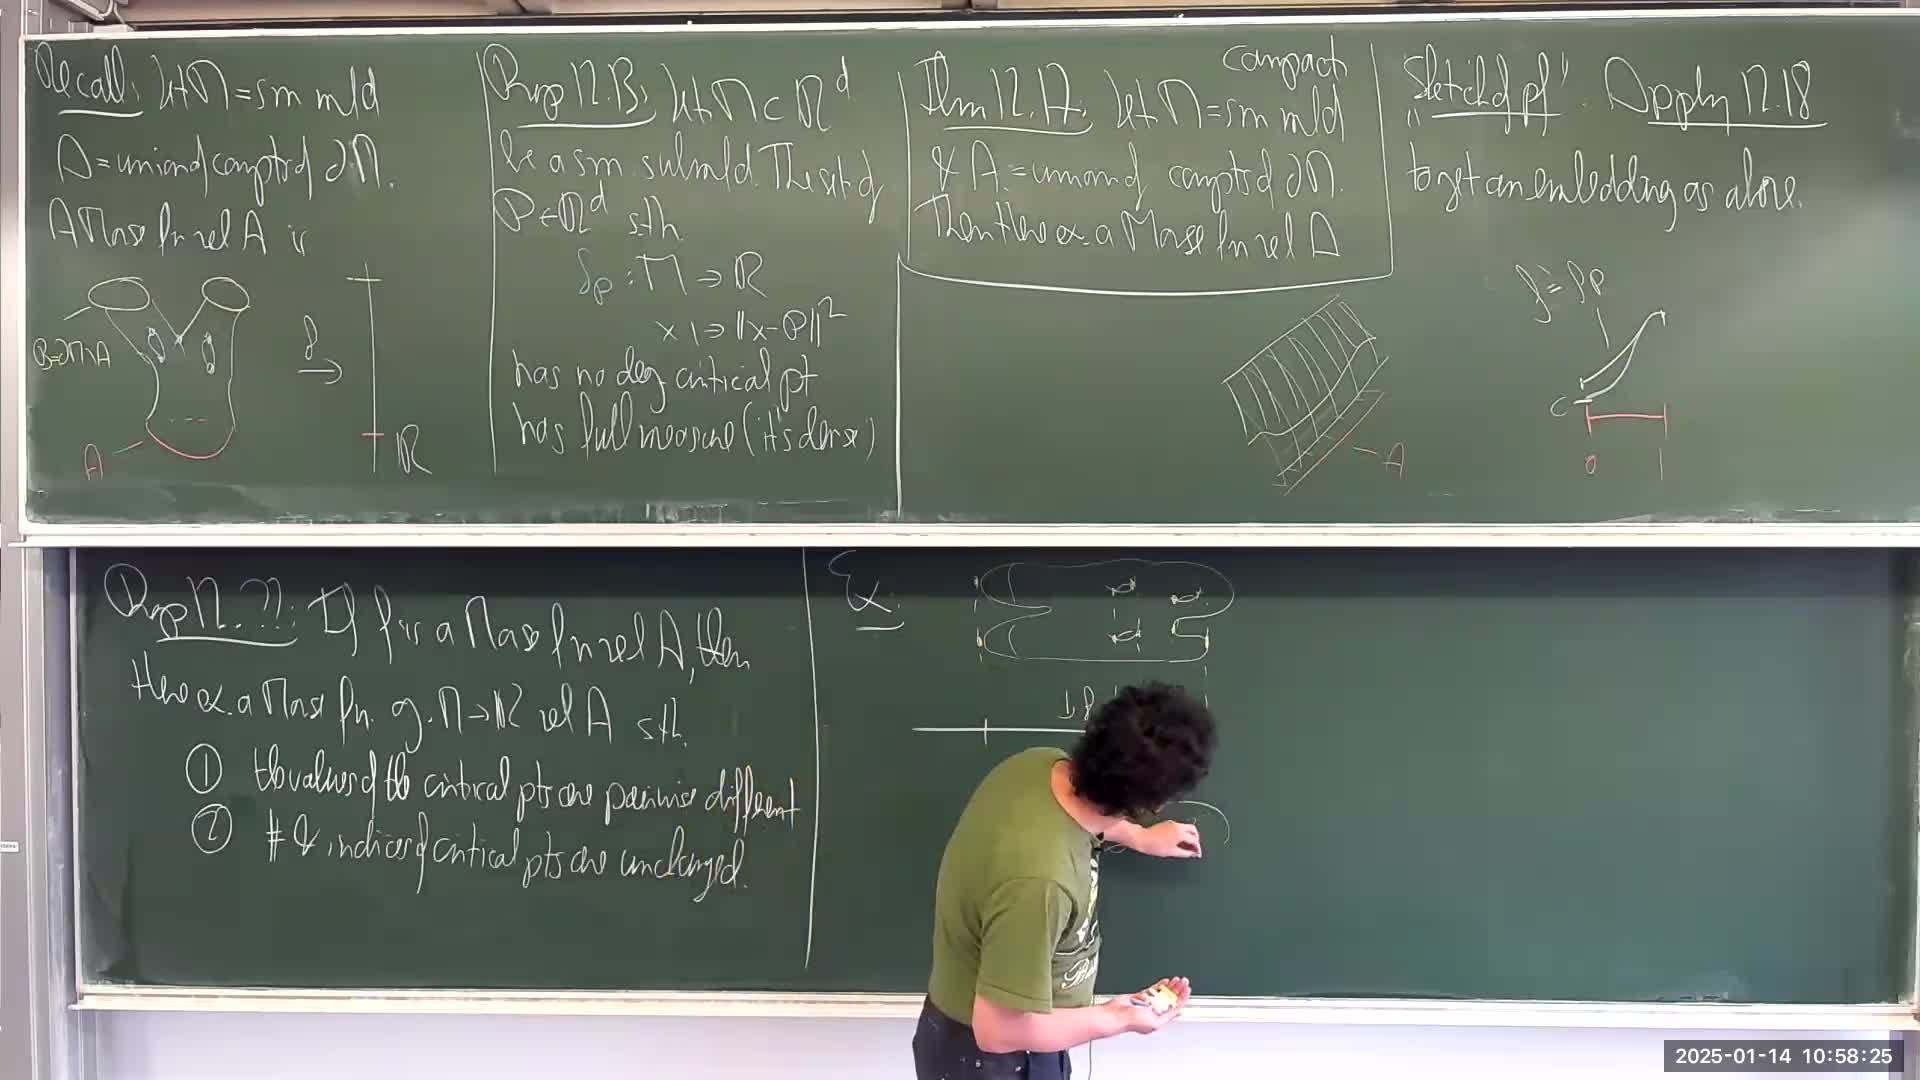 Recall: let M = sm mld
A = union of compts of ∂M.
A Morse fn rel A is
B=∂M\A
f
A
R
Prop 12.13: let M ⊂ R^d
be a sm. submld. The set of
P ∈ R^d s.th.
f_p : M → R
x ↦ ||x-P||²
has no deg critical pt
has full measure (it's dense)
Thm 12.17: let M = sm mld
compact
& A = union of compts of ∂M.
Then there ex. a Morse fn rel A
A
"Sketch of pf": Apply 12.18
to get an embedding as above.
C
0
1
Prop 12.??: If f is a Morse fn rel A, then
there ex. a Morse fn. g: M → R rel A s.th.
① the values of the critical pts are pairwise different
② # & indices of critical pts are unchanged.
Ex:
↓f
2025-01-14 10:58:25